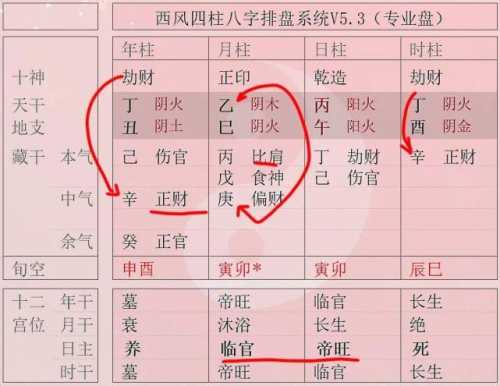 西风四柱八字排盘系统V5.3（专业盘）
年柱 月柱 日柱 时柱
十神 劫财 正印 乾造 劫财
天干 丁 阴火 乙 阴木 丙 阳火 丁 阴火
地支 丑 阴土 巳 阴火 午 阳火 酉 阴金
藏干 本气 己 伤官 丙 比肩 丁 劫财 辛 正财
戊 食神 己 伤官
中气 辛 正财 庚 偏财
余气 癸 正官
旬空 申酉 寅卯* 寅卯 辰巳
十二 年干 墓 帝旺 临官 长生
宫位 月干 衰 沐浴 长生 绝
日主 养 临官 帝旺 死
时干 墓 帝旺 临官 长生